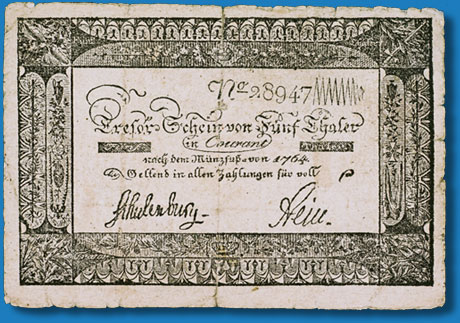 No. 28947
Tresor-Schein von Fünf Thaler
in Courant
nach dem Münzfuß von 1764
Geltend in allen Zahlungen für voll
Schulenburg